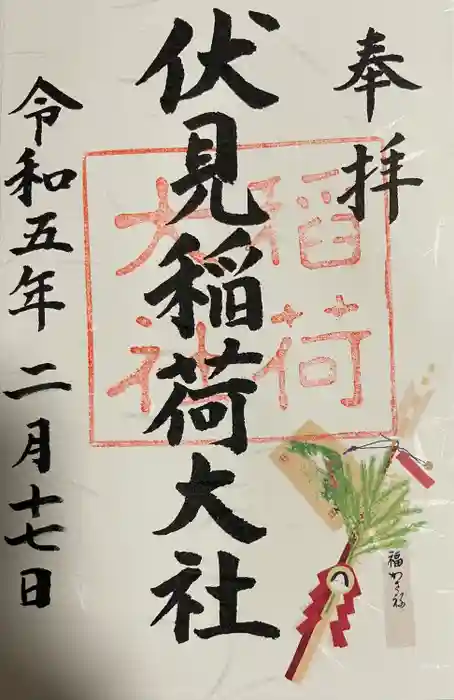 奉拝
伏見稲荷大社
稲荷
大社
令和五年 二月十七日